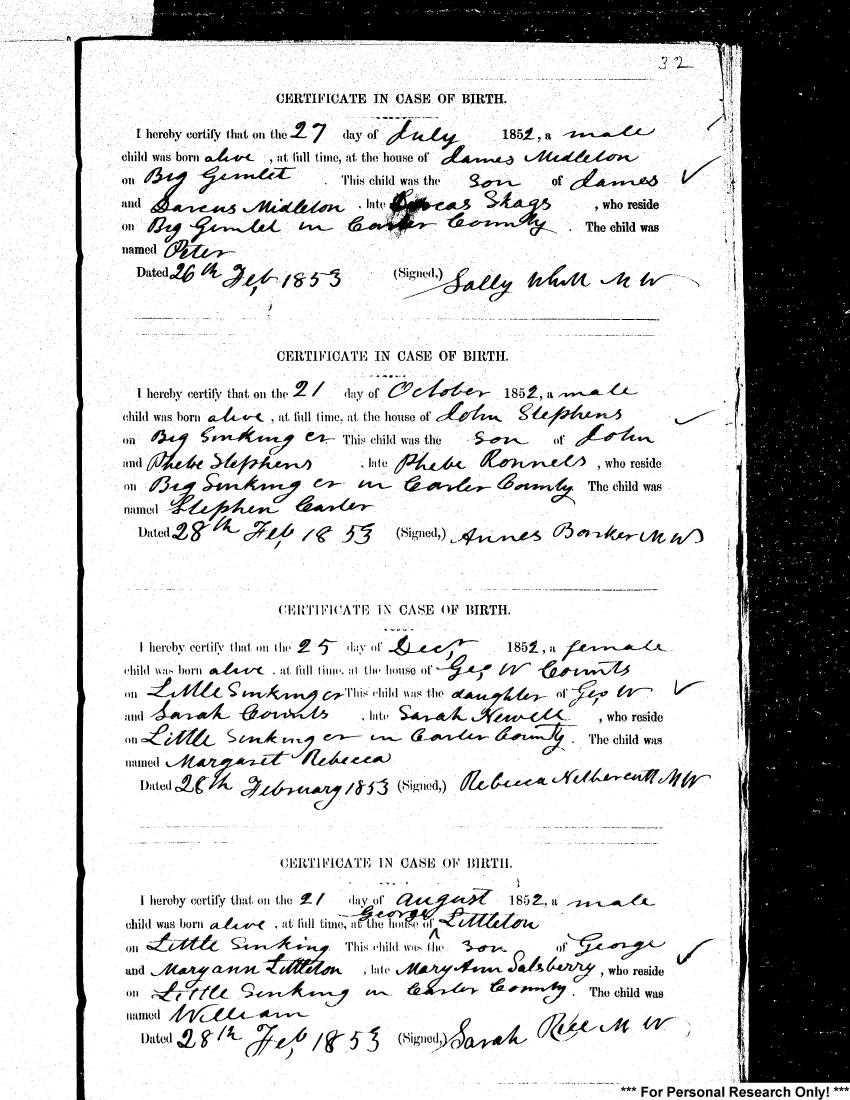 32
CERTIFICATE IN CASE OF BIRTH.
I hereby certify that on the 27 day of July 1852, a male
child was born alive, at full time, at the house of James Midleton
on Big Gimlet. This child was the son of James
and Darcus Midleton, late Darcas Skags, who reside
on Big Gimlet in Carter County. The child was
named Peter
Dated 26th Feb, 1853 (Signed,) Sally Whitt M W
CERTIFICATE IN CASE OF BIRTH.
I hereby certify that on the 21 day of October 1852, a male
child was born alive, at full time, at the house of John Stephens
on Big Sinking cr This child was the son of John
and Phebe Stephens, late Phebe Ronnels, who reside
on Big Sinking cr in Carter County The child was
named Stephen Carter
Dated 28th Feb, 1853 (Signed,) Annes Barker M W
CERTIFICATE IN CASE OF BIRTH.
I hereby certify that on the 25 day of Decr, 1852, a female
child was born alive, at full time, at the house of Geo W Counts
on Little Sinking cr This child was the daughter of Geo W
and Sarah Counts, late Sarah Newell, who reside
on Little Sinking cr in Carter County. The child was
named Margaret Rebecca
Dated 28th February 1853 (Signed,) Rebecca Nethercutt M W
CERTIFICATE IN CASE OF BIRTH.
I hereby certify that on the 21 day of August 1852, a male
child was born alive, at full time, at the house of George Littleton
on Little Sinking This child was the son of George
and Maryann Littleton, late Mary Ann Salsberry, who reside
on Little Sinking in Carter County. The child was
named William
Dated 28th Feb, 1853 (Signed,) Sarah Rice M W
*** For Personal Research Only! ***